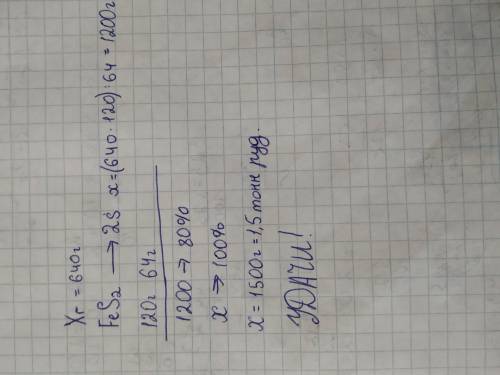 Xг = 640г
FeS2 → 2S x=(640·120):64 = 1200г
120г 64г
1200 → 80%
x → 100%
x = 1500г = 1,5 тонн руд.
УДАЧИ!